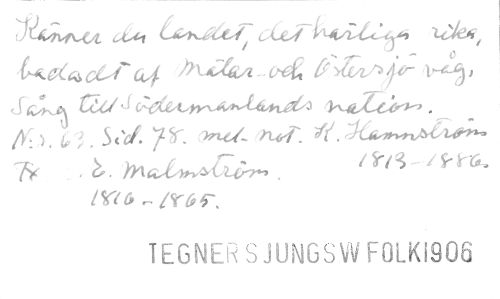 Känner du landet, det härliga rika,
badadt af Mälar- och Östersjö våg.
Sång till Södermanlands nation.
N:o. 63. Sid. 78. mel. not. K. Hammström
Tx E. Malmström. 1813-1886.
1816-1865.
TEGNER SJUNGSWFOLK1906